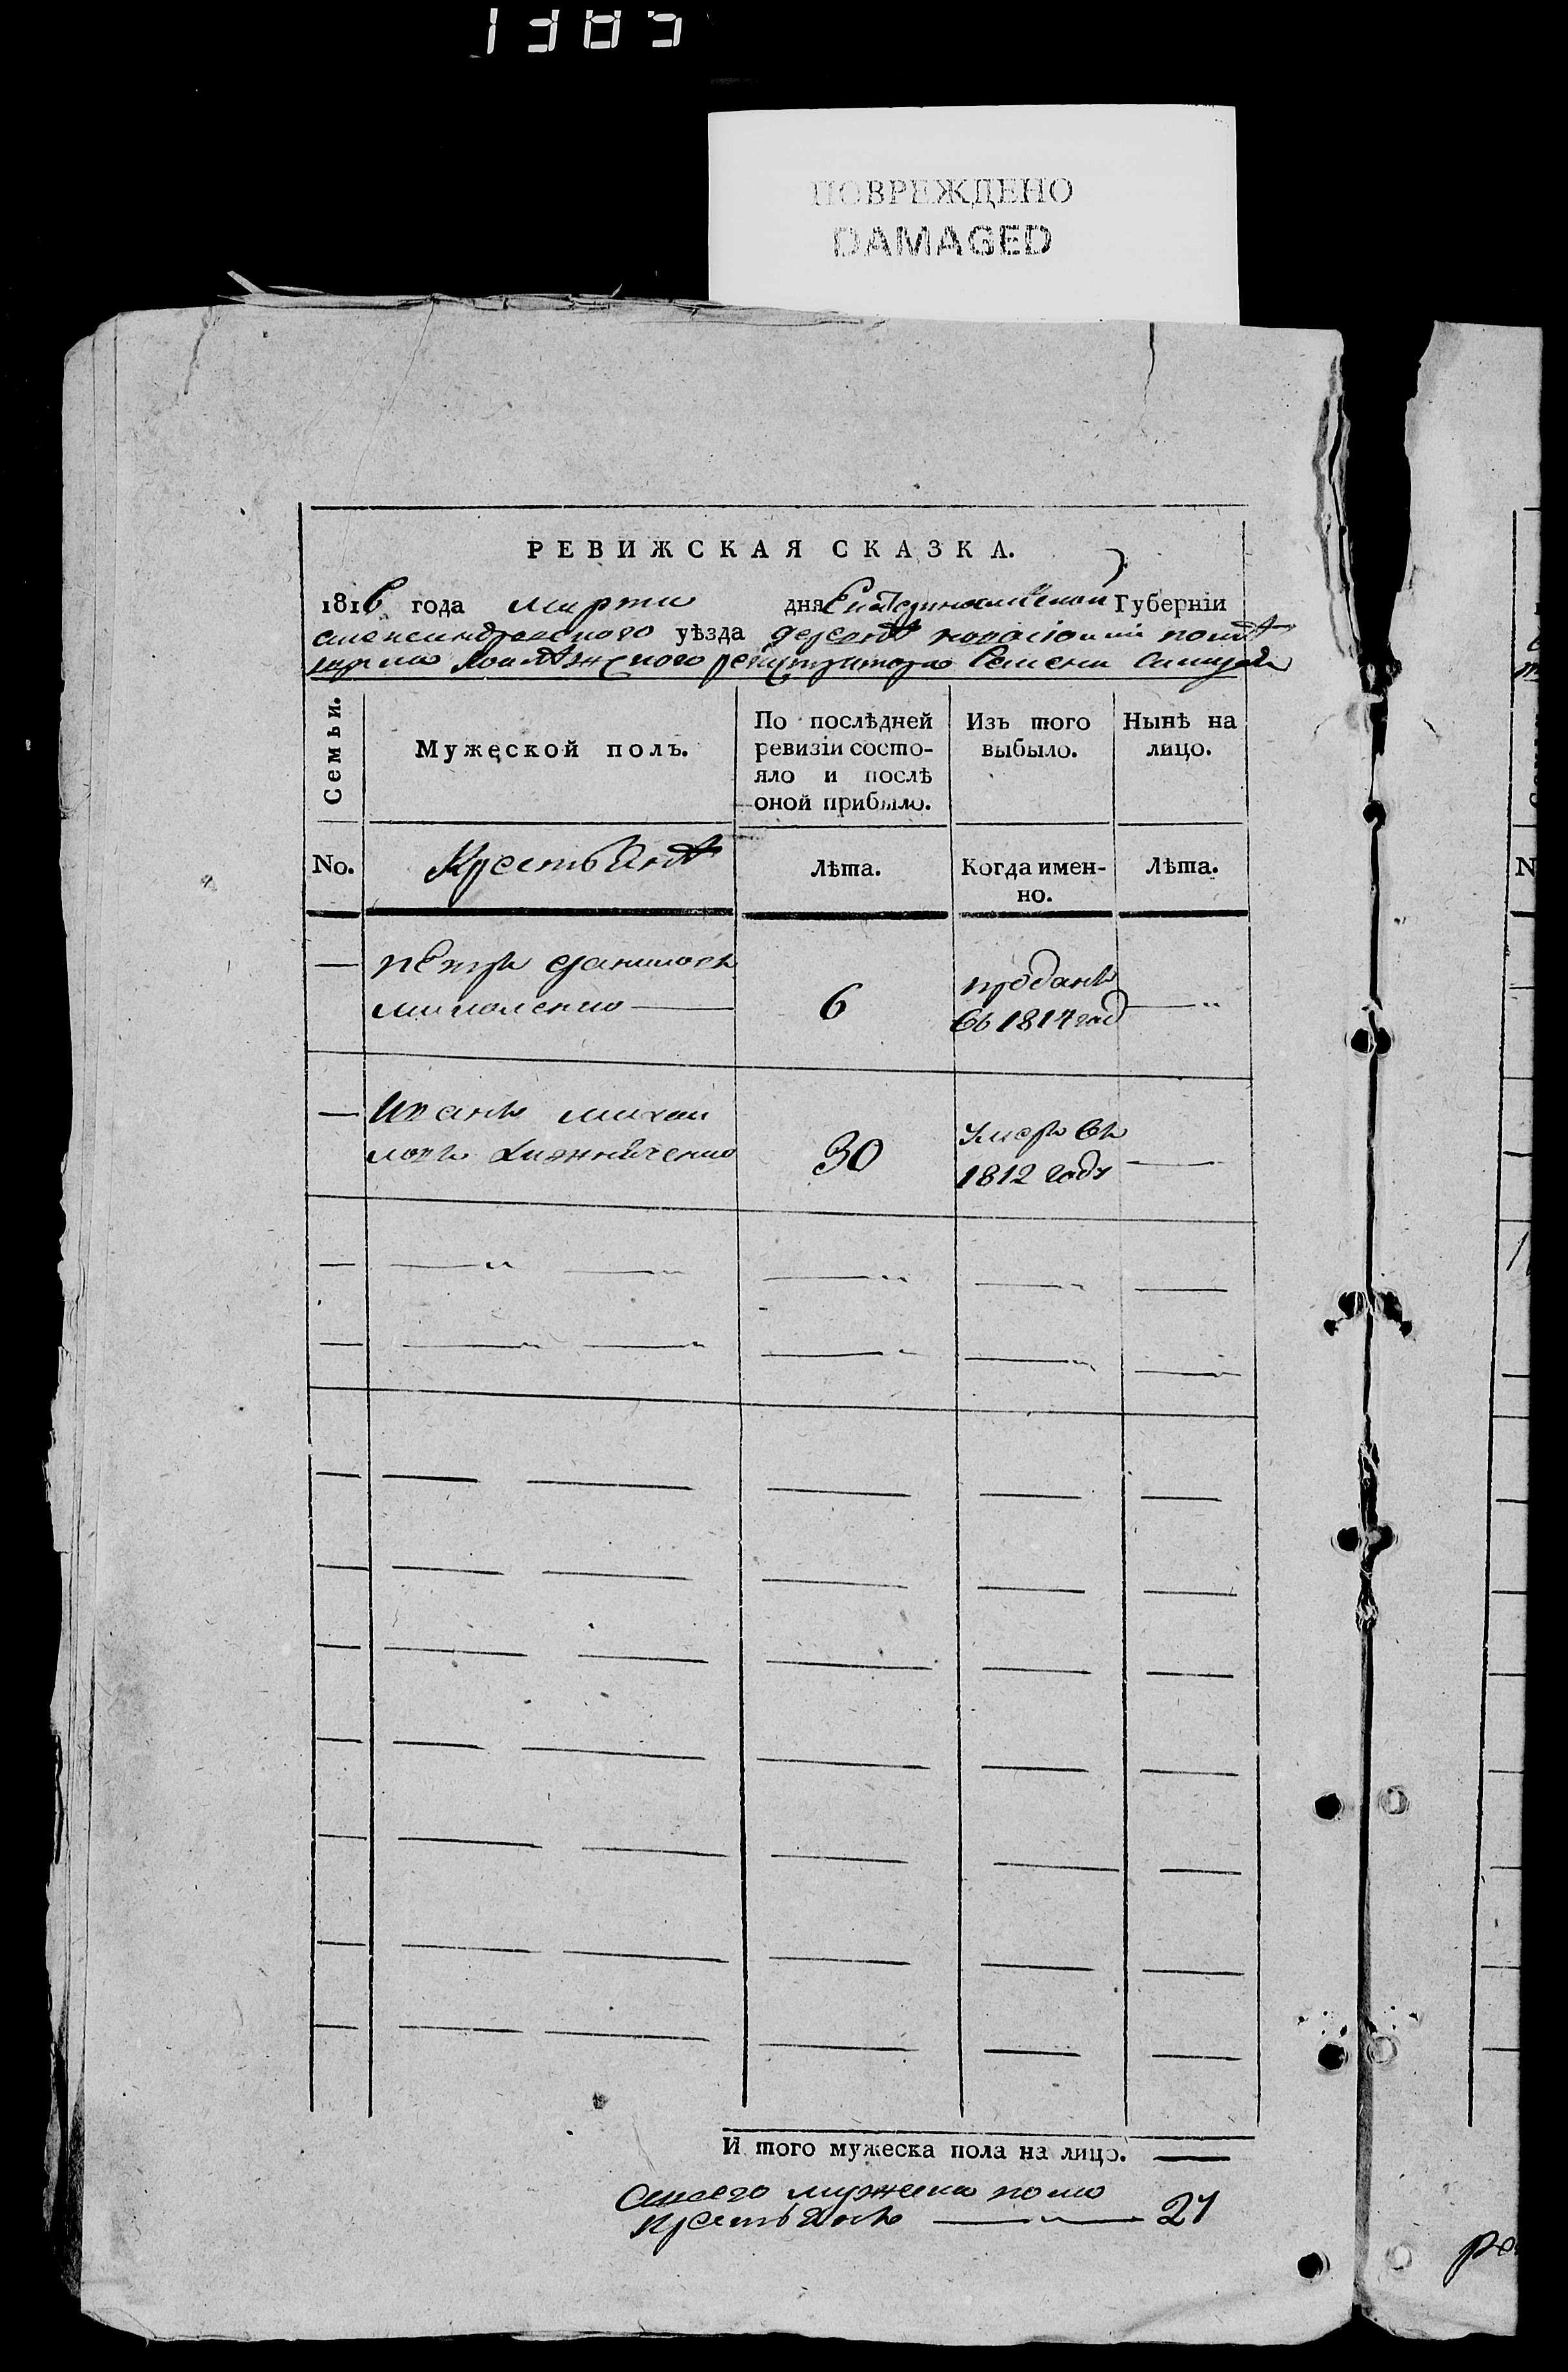 1385
ПОВРЕЖДЕНО
DAMAGED
РЕВИЖСКАЯ СКАЗКА.
1816 года марта дня Екатеринославской Губерніи
александровского уѣзда деревнѣ помѣ
регистратора Семена
Семьи.
Мужеской полъ.
По послѣдней ревизіи состо-
яло и послѣ
оной прибыло.
Изъ того
выбыло.
Нынѣ на
лицо.
No.
Крестьянѣ
Лѣта.
Когда имен-
но.
Лѣта.
— петръ даниловъ
— 6 проданъ
въ 1814 год —
— Иванъ михаи
ловъ 30 умеръ въ
1812 году —
И того мужеска пола на лицо. —
Всего мужеска пола
крестьянъ — 21